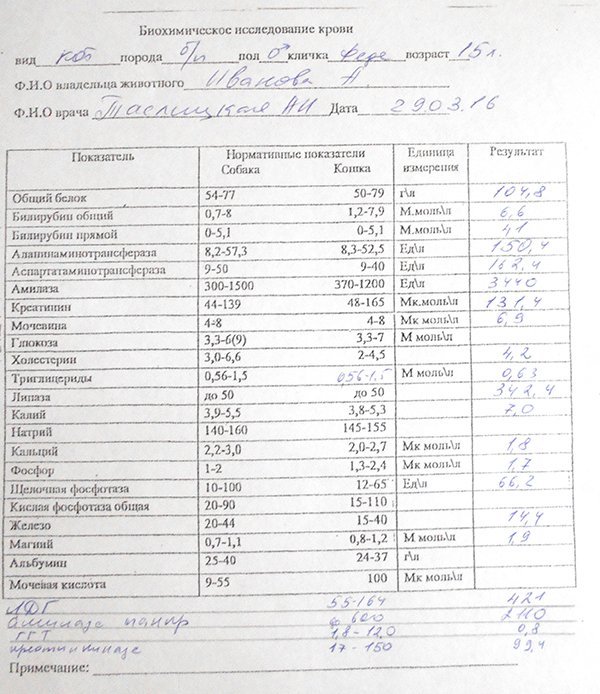 Биохимическое исследование крови
вид кот порода б/п пол ♂ кличка Федя возраст 15 л.
Ф.И.О владельца животного Иванова А.
Ф.И.О врача Таслицкая АИ Дата 29.03.16
Показатель Нормативные показатели Единица измерения Результат
Собака Кошка
Общий белок 54-77 50-79 г\л 104,8
Билирубин общий 0,7-8 1,2-7,9 М.моль\л 6,6
Билирубин прямой 0-5,1 0-5,1 М.моль\л 4,1
Аланинаминотрансфераза 8,2-57,3 8,3-52,5 Ед\л 150,4
Аспартатаминотрансфераза 9-50 9-40 Ед\л 162,4
Амилаза 300-1500 370-1200 Ед\л 3440
Креатинин 44-139 48-165 Мк.моль\л 131,4
Мочевина 4-8 4-8 Мк моль\л 6,9
Глюкоза 3,3-6(9) 3,3-7 М моль\л
Холестерин 3,0-6,6 2-4,5 4,2
Триглицериды 0,56-1,5 056-1.5 М моль\л 0,63
Липаза до 50 до 50 342,4
Калий 3,9-5,5 3,8-5,3 7,0
Натрий 140-160 145-155
Кальций 2,2-3,0 2,0-2,7 Мк моль\л 1,8
Фосфор 1-2 1,3-2,4 Мк моль\л 1,7
Щелочная фосфотаза 10-100 12-65 Ед\л 66,2
Кислая фосфотаза общая 20-90 15-110
Железо 20-44 15-40 14,4
Магний 0,7-1,1 0,8-1,2 М моль\л 1,9
Альбумин 25-40 24-37 г\л
Мочевая кислота 9-55 100 Мк моль\л
ЛДГ 55-164 421
амилаза панкр 600 2110
ГГТ 1,8-12,0 0,8
креатинкиназа 17-150 99,4
Примечание: